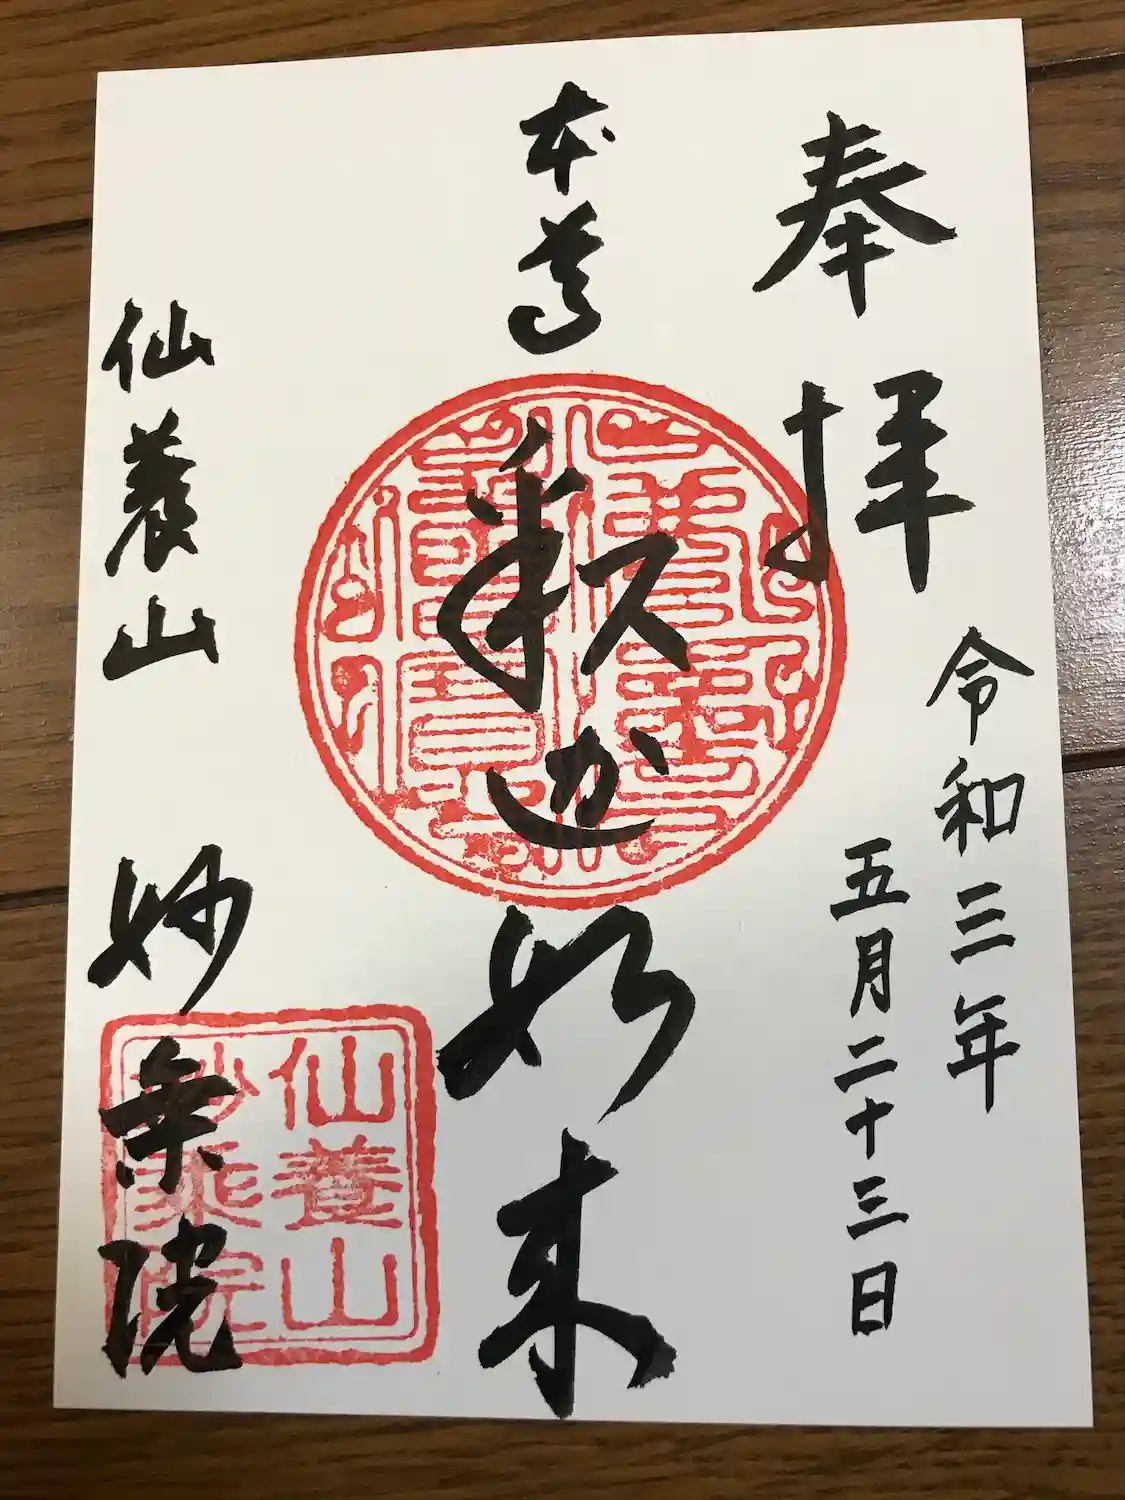 奉拝
令和三年
五月二十三日
本尊
釈迦如来
仙養山
妙乗院
仙養山
妙乗院